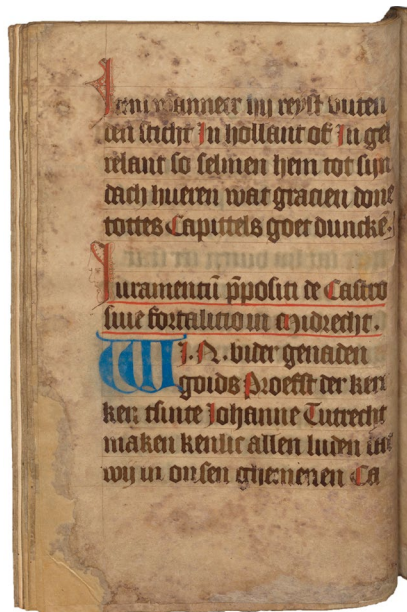 Item wanneer hij reyst buten
den sticht In hollant of In gel
relant so selmen hem tot sijn
dach hueren wat gracien done
tottes Capittels goet duncke.
Iuramentū p̄positi de Castro
siue fortalitio in mydrecht.
WI. N. bider genaden
goids Proefst der ker
ken tsinte Johanne Tutrecht
maken kenlic allen luden dat
wij in onsen ghemenen Ca